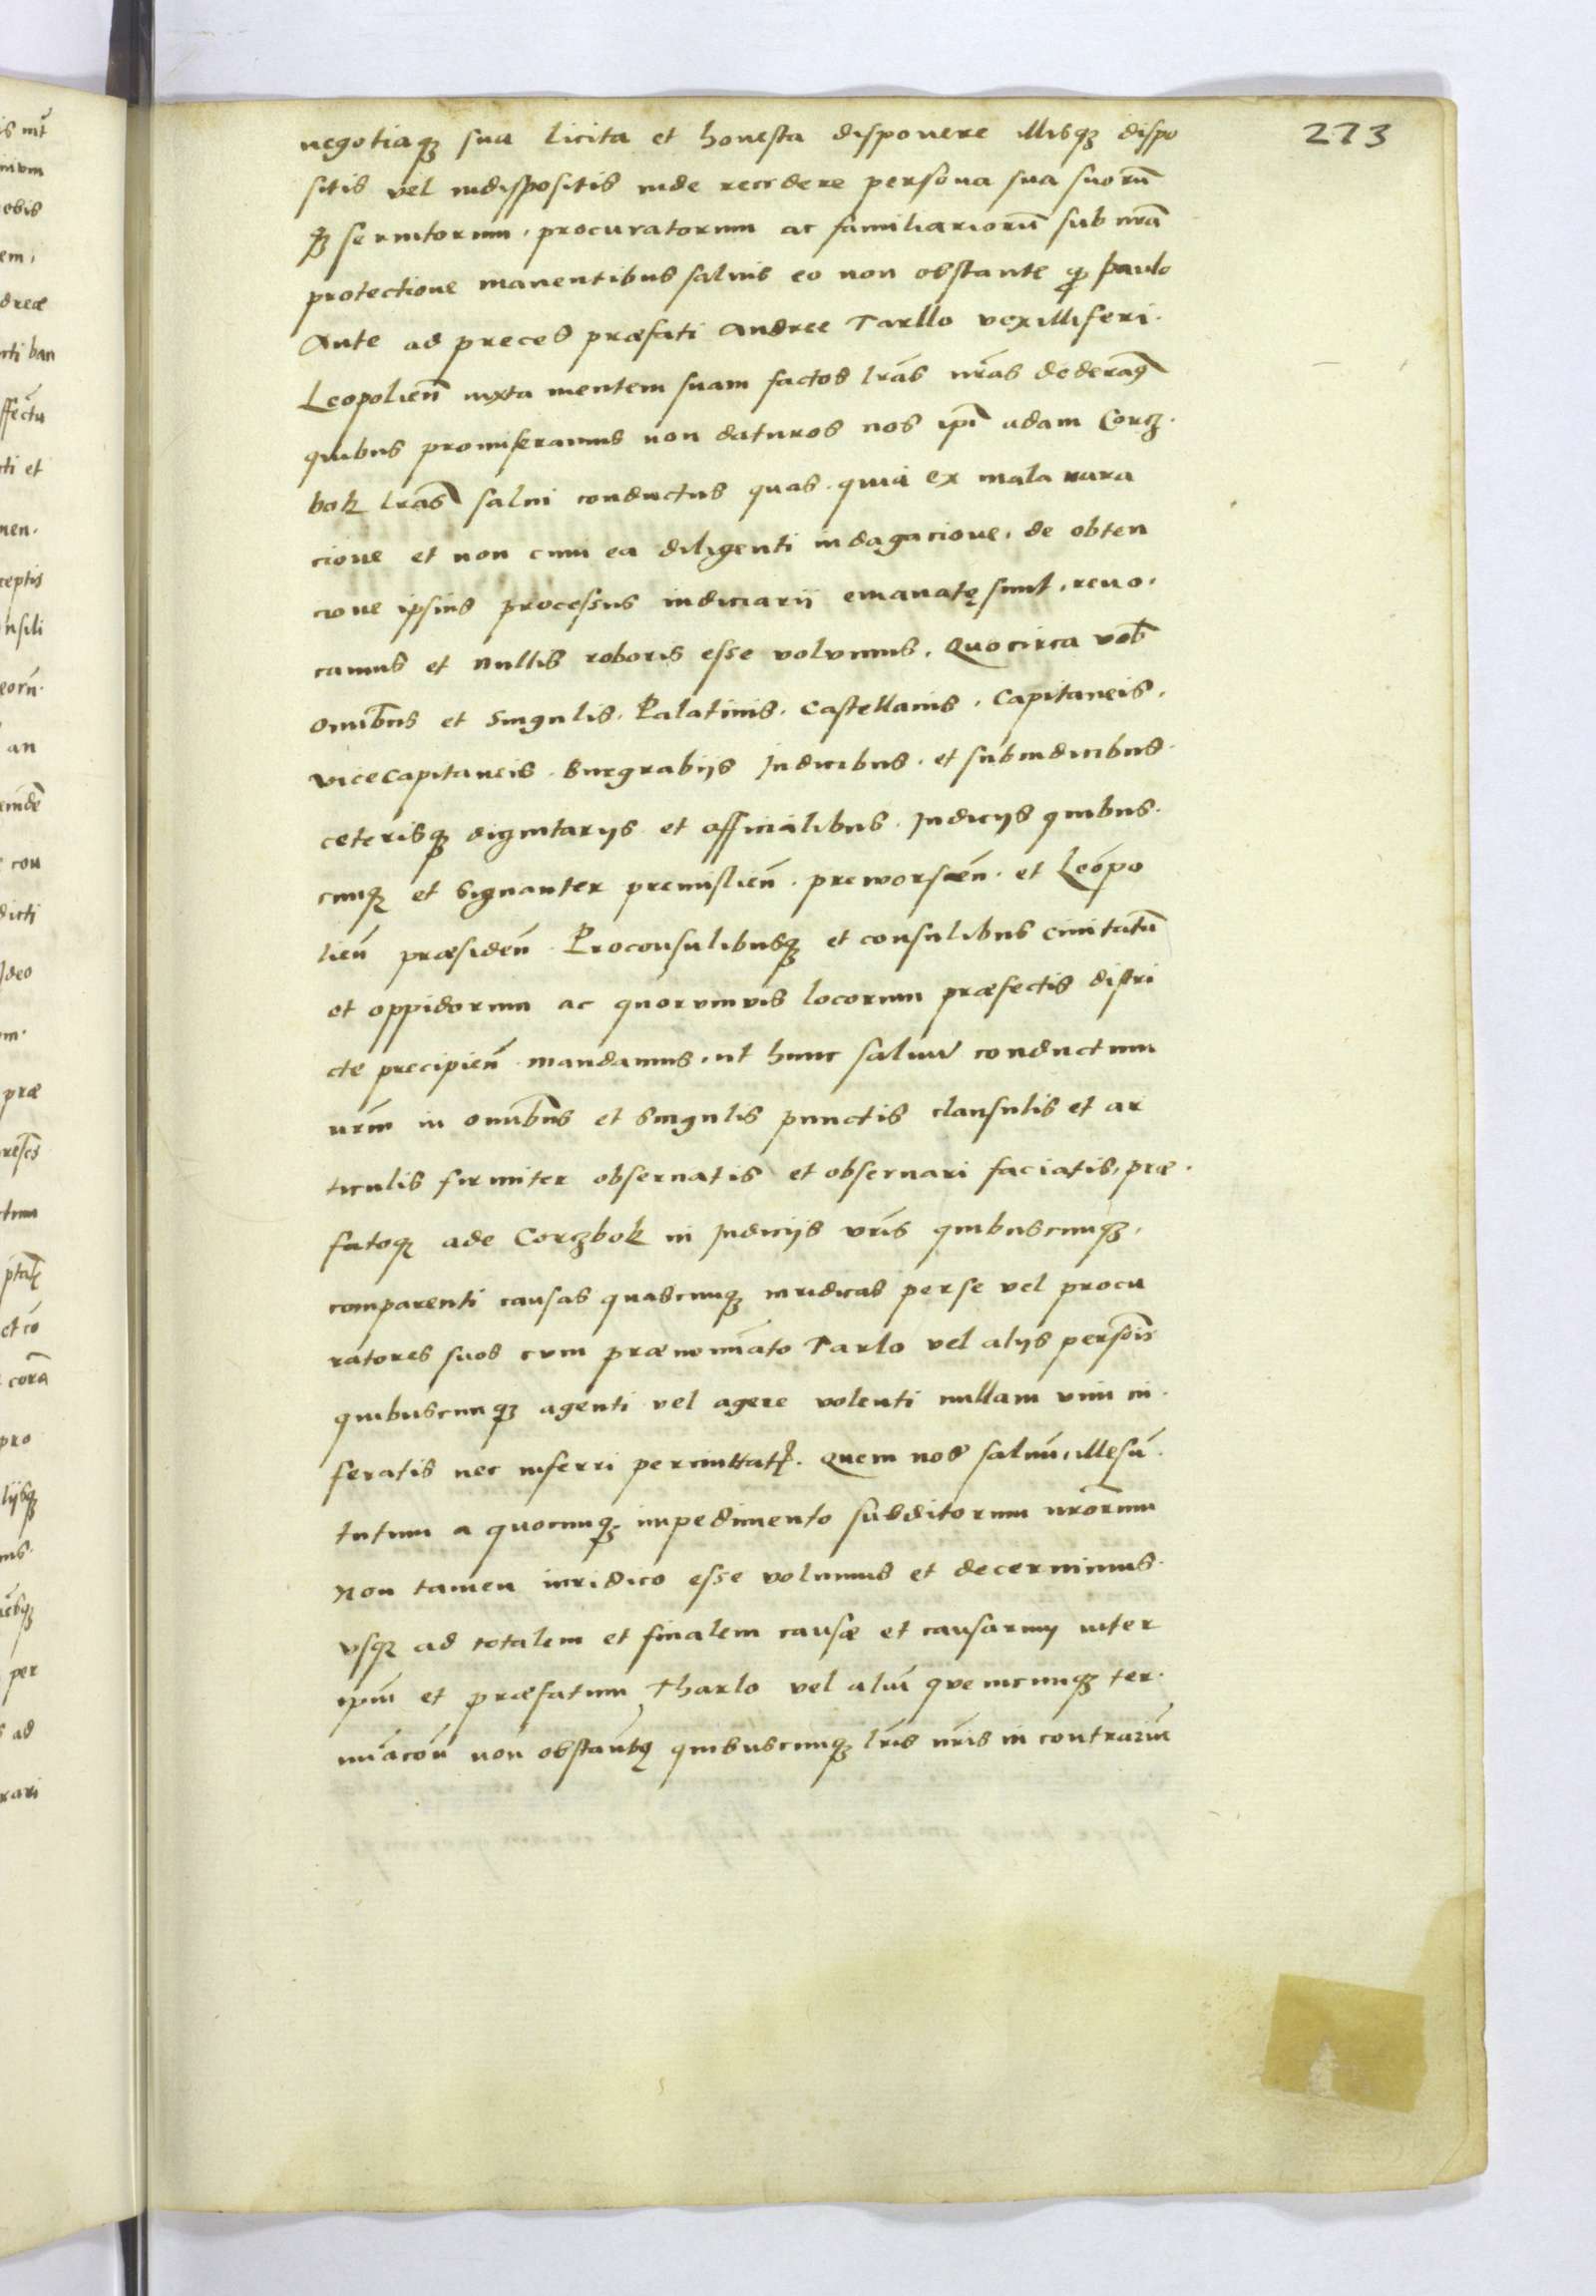 273
negotiaqꝫ sua licita et honesta disponere illisqꝫ dispo
sitis vel indispositis inde recedere persona sua suorū
qꝫ seruitorum, procuratorum ac familiariorū sub nr̄a
protectione manentibus saluis eo non obstante ꝙ paulo
Ante ad preces præfati Andree Tarllo vexilliferi.
Leopolien̄ iuxta mentem suam factos lr̄as nr̄as dederamꝰ
quibus promiseramus non daturos nos ipī adam Corcz.
bok lr̄as salui conductus quas. quia ex mala narra
cione et non cum ea diligenti indagacione, de obten
cione ipsius processus iudiciarii emanatę sunt, reuo,
camus et nullis roboris esse volumus. Quocirca vob̄
omībus et singulis. Palatinis. castellanis, capitaneis,
vicecapitaneis. Burgrabijs Judicibus. et subiudicibus.
ceterisqꝫ dignitarijs et officialibus. Judicijs quibus.
cunqꝫ et signanter premislien̄. preworscen̄. et Leopo
lien̄ præsiden̄. Proconsulibusqꝫ et consulibus ciuitatū
et oppidorum ac quorumuis locorum præfectis distri
cte precipien̄. mandamus, ut hunc saluū conductum
nr̄m in omībus et singulis punctis clausulis et ar
ticulis firmiter obseruatis et obseruari faciatis, præ.
fatoqꝫ ade Corczbok in Judicijs vr̄is quibuscunqꝫ,
comparenti causas quascunqꝫ iuridicas per se vel procu
ratores suos cum prænomīato Tarlo vel alijs persōis
quibuscunqꝫ agenti vel agere volenti nullam vim in.
feratis nec inferri permittatꝭ. Quem nos saluū, illesū.
tutum a quocunqꝫ impedimento subditorum nr̄orum
Non tamen iuridico esse volumus et decernimus.
vsqꝫ ad totalem et finalem causæ et causarum inter
ipm̄ et præfatum Tharlo vel aliū quemcunqꝫ ter.
mīacōn̄ non obstantibꝰ quibuscunqꝫ lr̄is nr̄is in contrariū